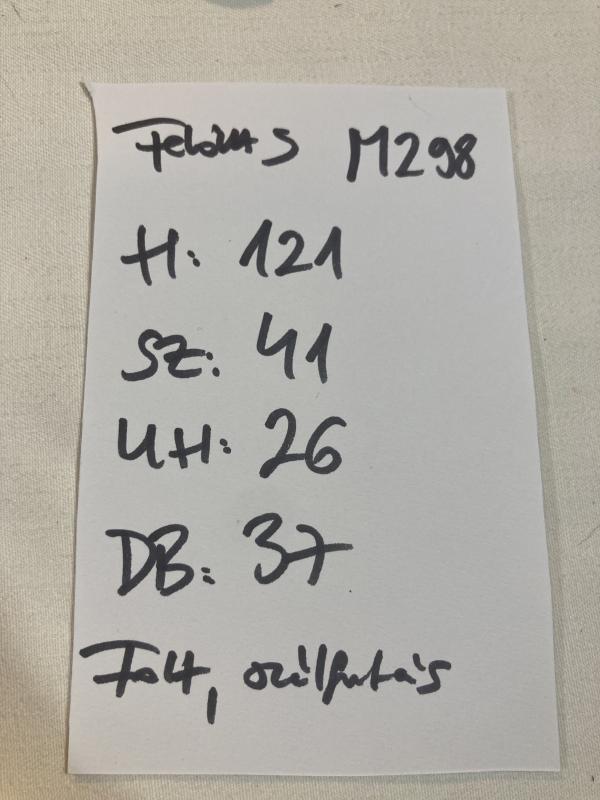 Felöltő S M298
H: 121
SZ: 41
UH: 26
DB: 37
Folt, szálfutás